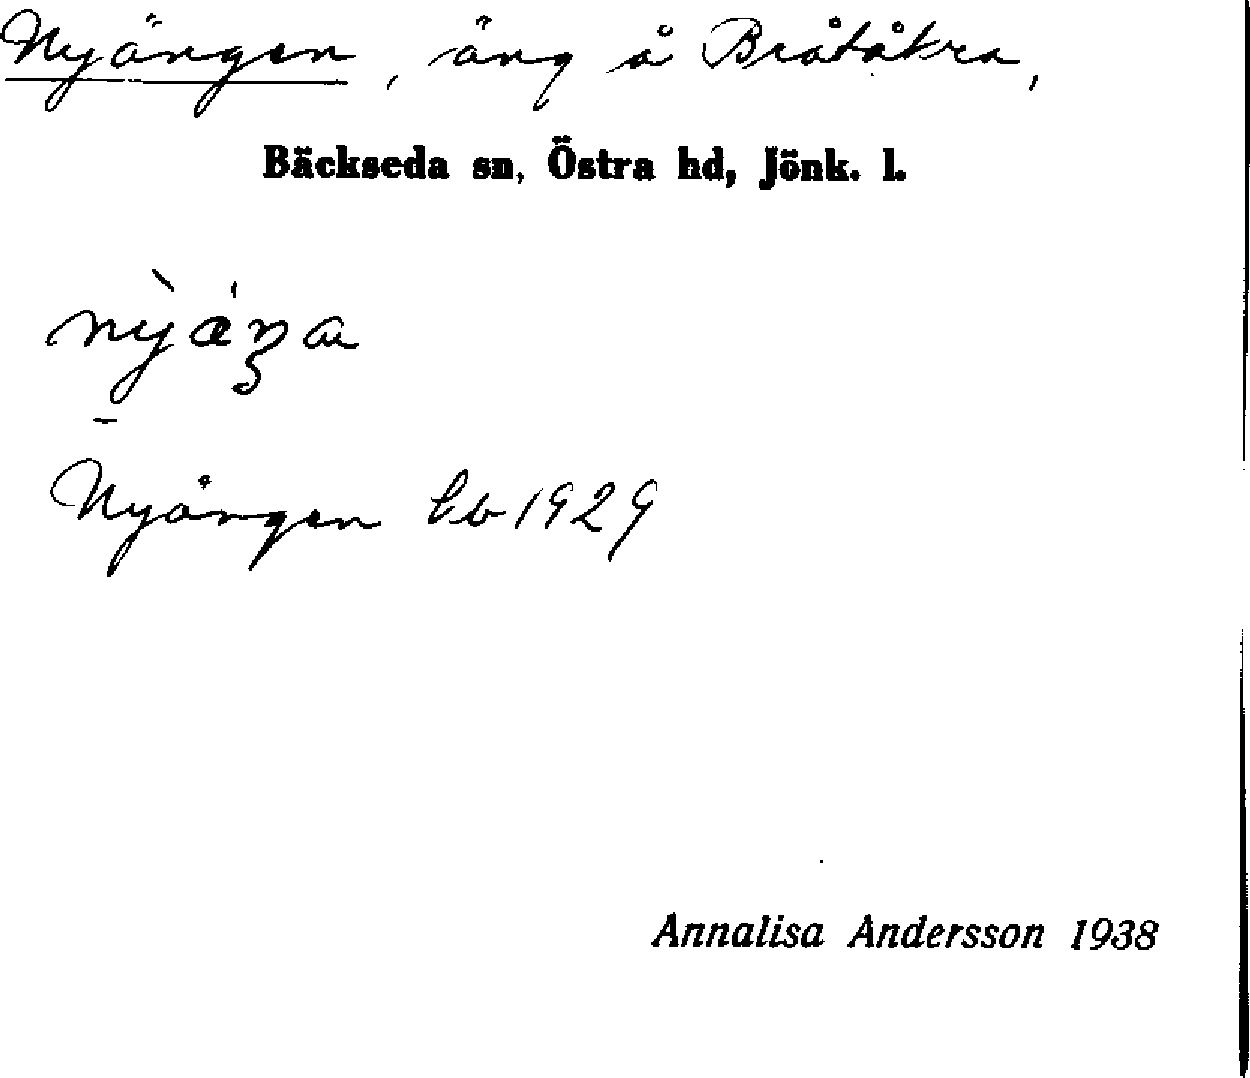 Nyängen, äng å Bråtåkra,
Bäckseda sn, Östra hd, Jönk. l.
Nyången lb 1929
Annalisa Andersson 1938